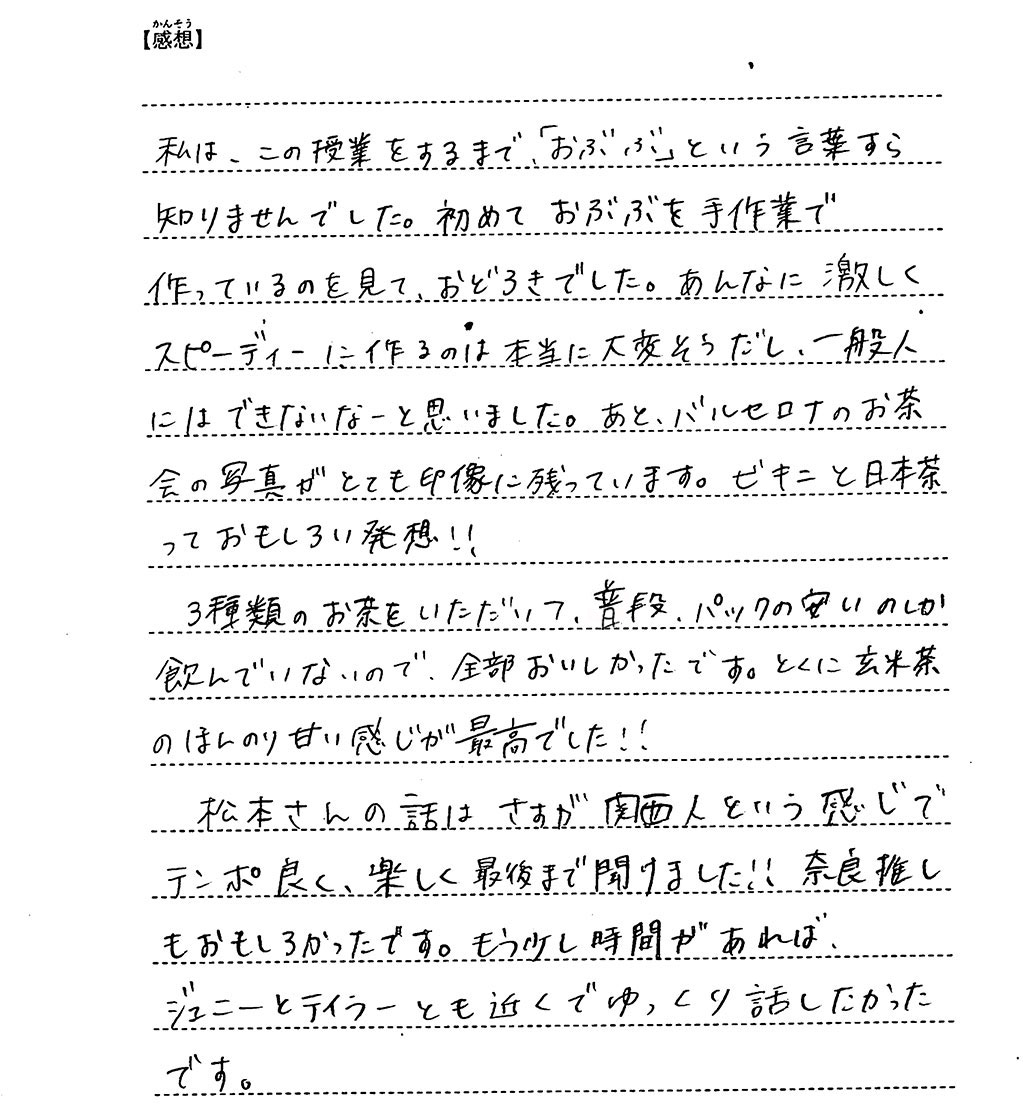 かんそう
【感想】
私は、この授業をするまで、「おぶぶ」という言葉すら
知りませんでした。初めて おぶぶを手作業で
作っているのを見て、おどろきでした。あんなに激しく
スピーディーに作るのは本当に大変そうだし、一般人
にはできないなーと思いました。あと、バルセロナのお茶
会の写真がとても印像に残っています。ビキニと日本茶
っておもしろい発想!!
3種類のお茶をいただいて、普段、パックの安いのしか
飲んでいないので、全部おいしかったです。とくに玄米茶
のほんのり甘い感じが最高でした!!
松本さんの話はさすが関西人という感じで
テンポ良く、楽しく最後まで聞けました!!奈良推し
もおもしろかったです。もう少し時間があれば、
ジュニーとテイラーとも近くでゆっくり話したかった
です。